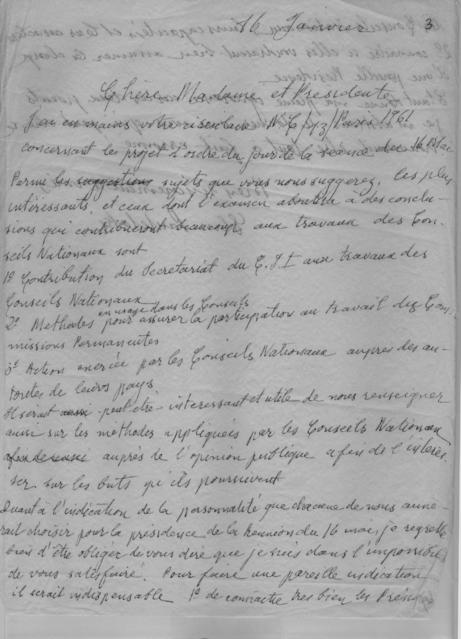 16 Janvier 3
Chère Madame et Présidente
J'ai en mains votre circulaire N.C. 43/Paris 1961
concernant les projet d'ordre du jour de la séance du 16 Mai
Parmi les suggestions sujets que vous nous suggerez, les plus
intéressants, et ceux dont l'examen aboutira à des conclu-
sions qui contribueront beaucoup aux travaux des Con-
seils Nationaux sont
1º Contribution du Secretariat du C.I.F aux travaux des
Conseils Nationaux
en usage dans les Conseils
2º Methodes pour assurer la participation au travail des Com-
missions Permanentes
3º Action exercée par les Conseils Nationaux auprès des au-
torités de leurs pays
Il serait peut-être interessant et utile de nous renseigner
aussi sur les méthodes appliquées par les Conseils Nationaux
auprès de l'opinion publique afin de l'intéres-
ser sur les buts qu'ils poursuivent
Quant à l'indication de la personnalité que chacune de nous aime-
rait choisir pour la présidence de la Reunion du 16 mai, je regrette
d'être obliger de vous dire que je suis dans l'impossibili
de vous satisfaire. Pour faire une pareille indication
il serait indispensable 1º de connaître tres bien les Présiden